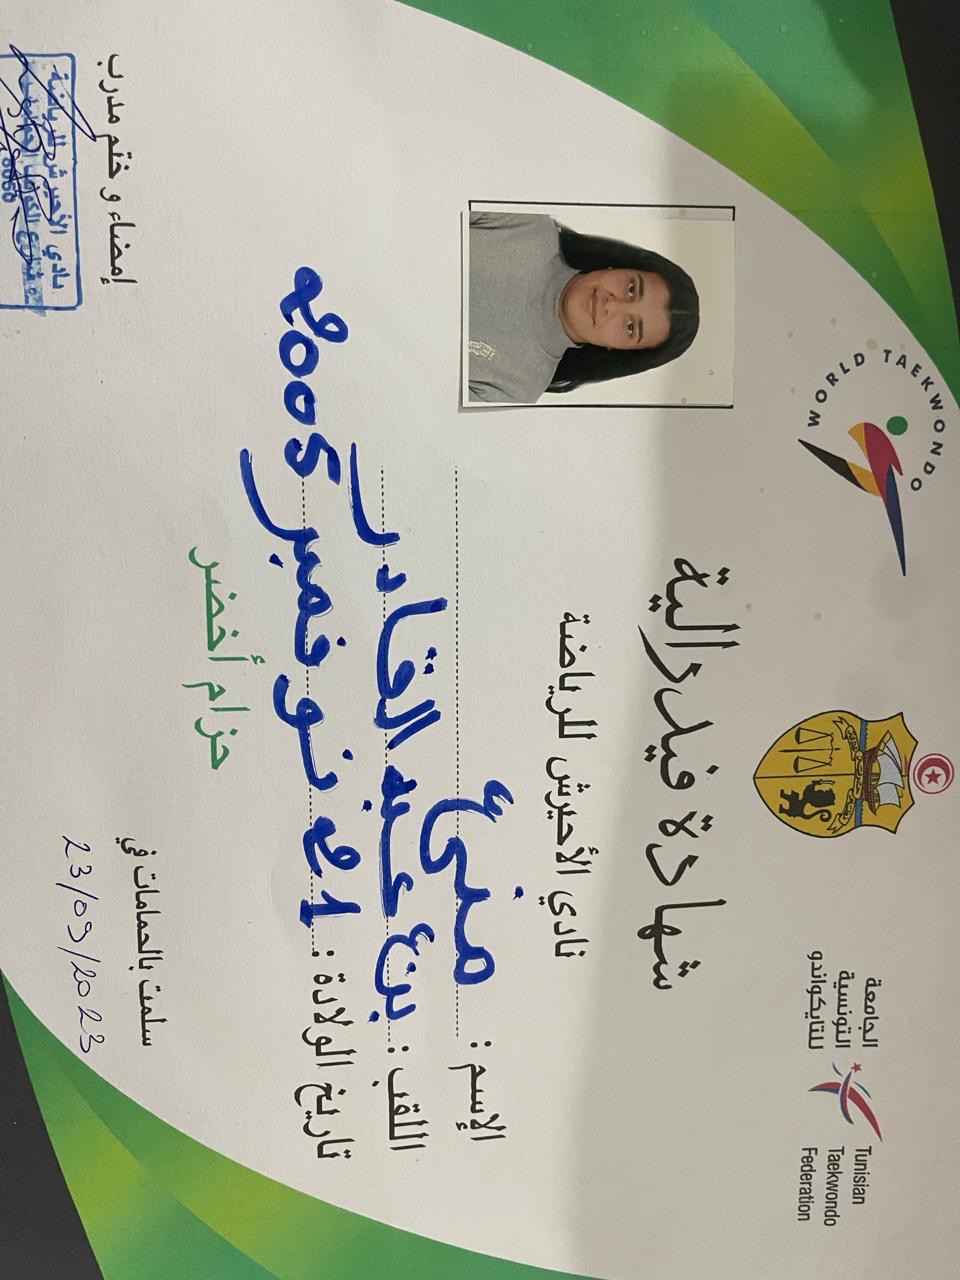 الجامعة
التونسية
للتايكواندو
Tunisian
Taekwondo
Federation
WORLD TAEKWONDO
شهادة فيدرالية
نادي الأحيرش للرياضة
الإسم : منى
اللقب : بن عبد القادر
تاريخ الولادة : 21 نوفمبر 2005
حزام أخضر
سلمت بالحمامات في
23/09/2023
إمضاء و ختم مدرب
نادي الأحيرش للرياضة